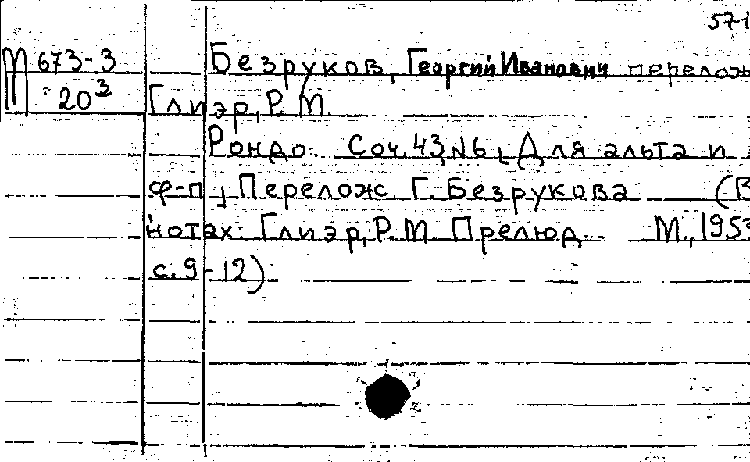 57-1
М 673-3 Безруков, Георгий Иванович перелож
20³ Глиэр, Р. М.
Рондо. Соч. 43, №6, Для альта и
ф-п, Перелож Г. Безрукова (В
нотах: Глиэр, Р. М. Прелюд. М., 1953
с. 9-12)